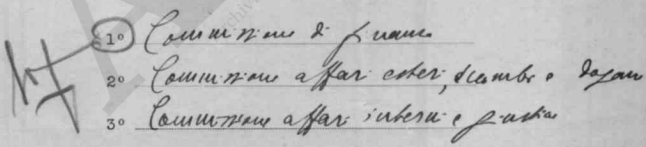 1º Commissione di finanze
2º Commissione affari esteri, scambi e dogane
3º Commissione affari interni e giustizia